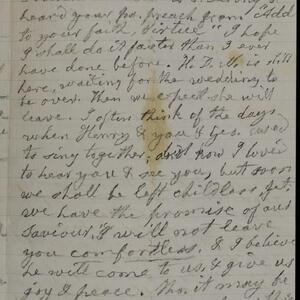 heard your Pa. preach from "Add
to your faith, virtue" I hope
I shall do it faster than I ever
have done before. H. D. M. is still
here, waiting for the wedding to
be over. Then we expect she will
leave. I often think of the days
when Henry & you & Geo. used
to sing together, and how I loved
to hear you & see you, but soon
we shall be left childless, yet,
we have the promise of our
Saviour, "I will not leave
you comfortless, & I believe
he will come to us, & give us
joy & peace. Tho. it may be